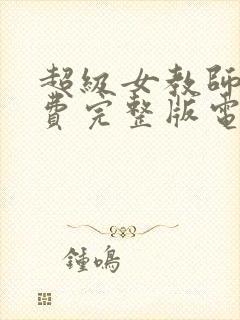 超級女教師
費完整版電
鍾鳴